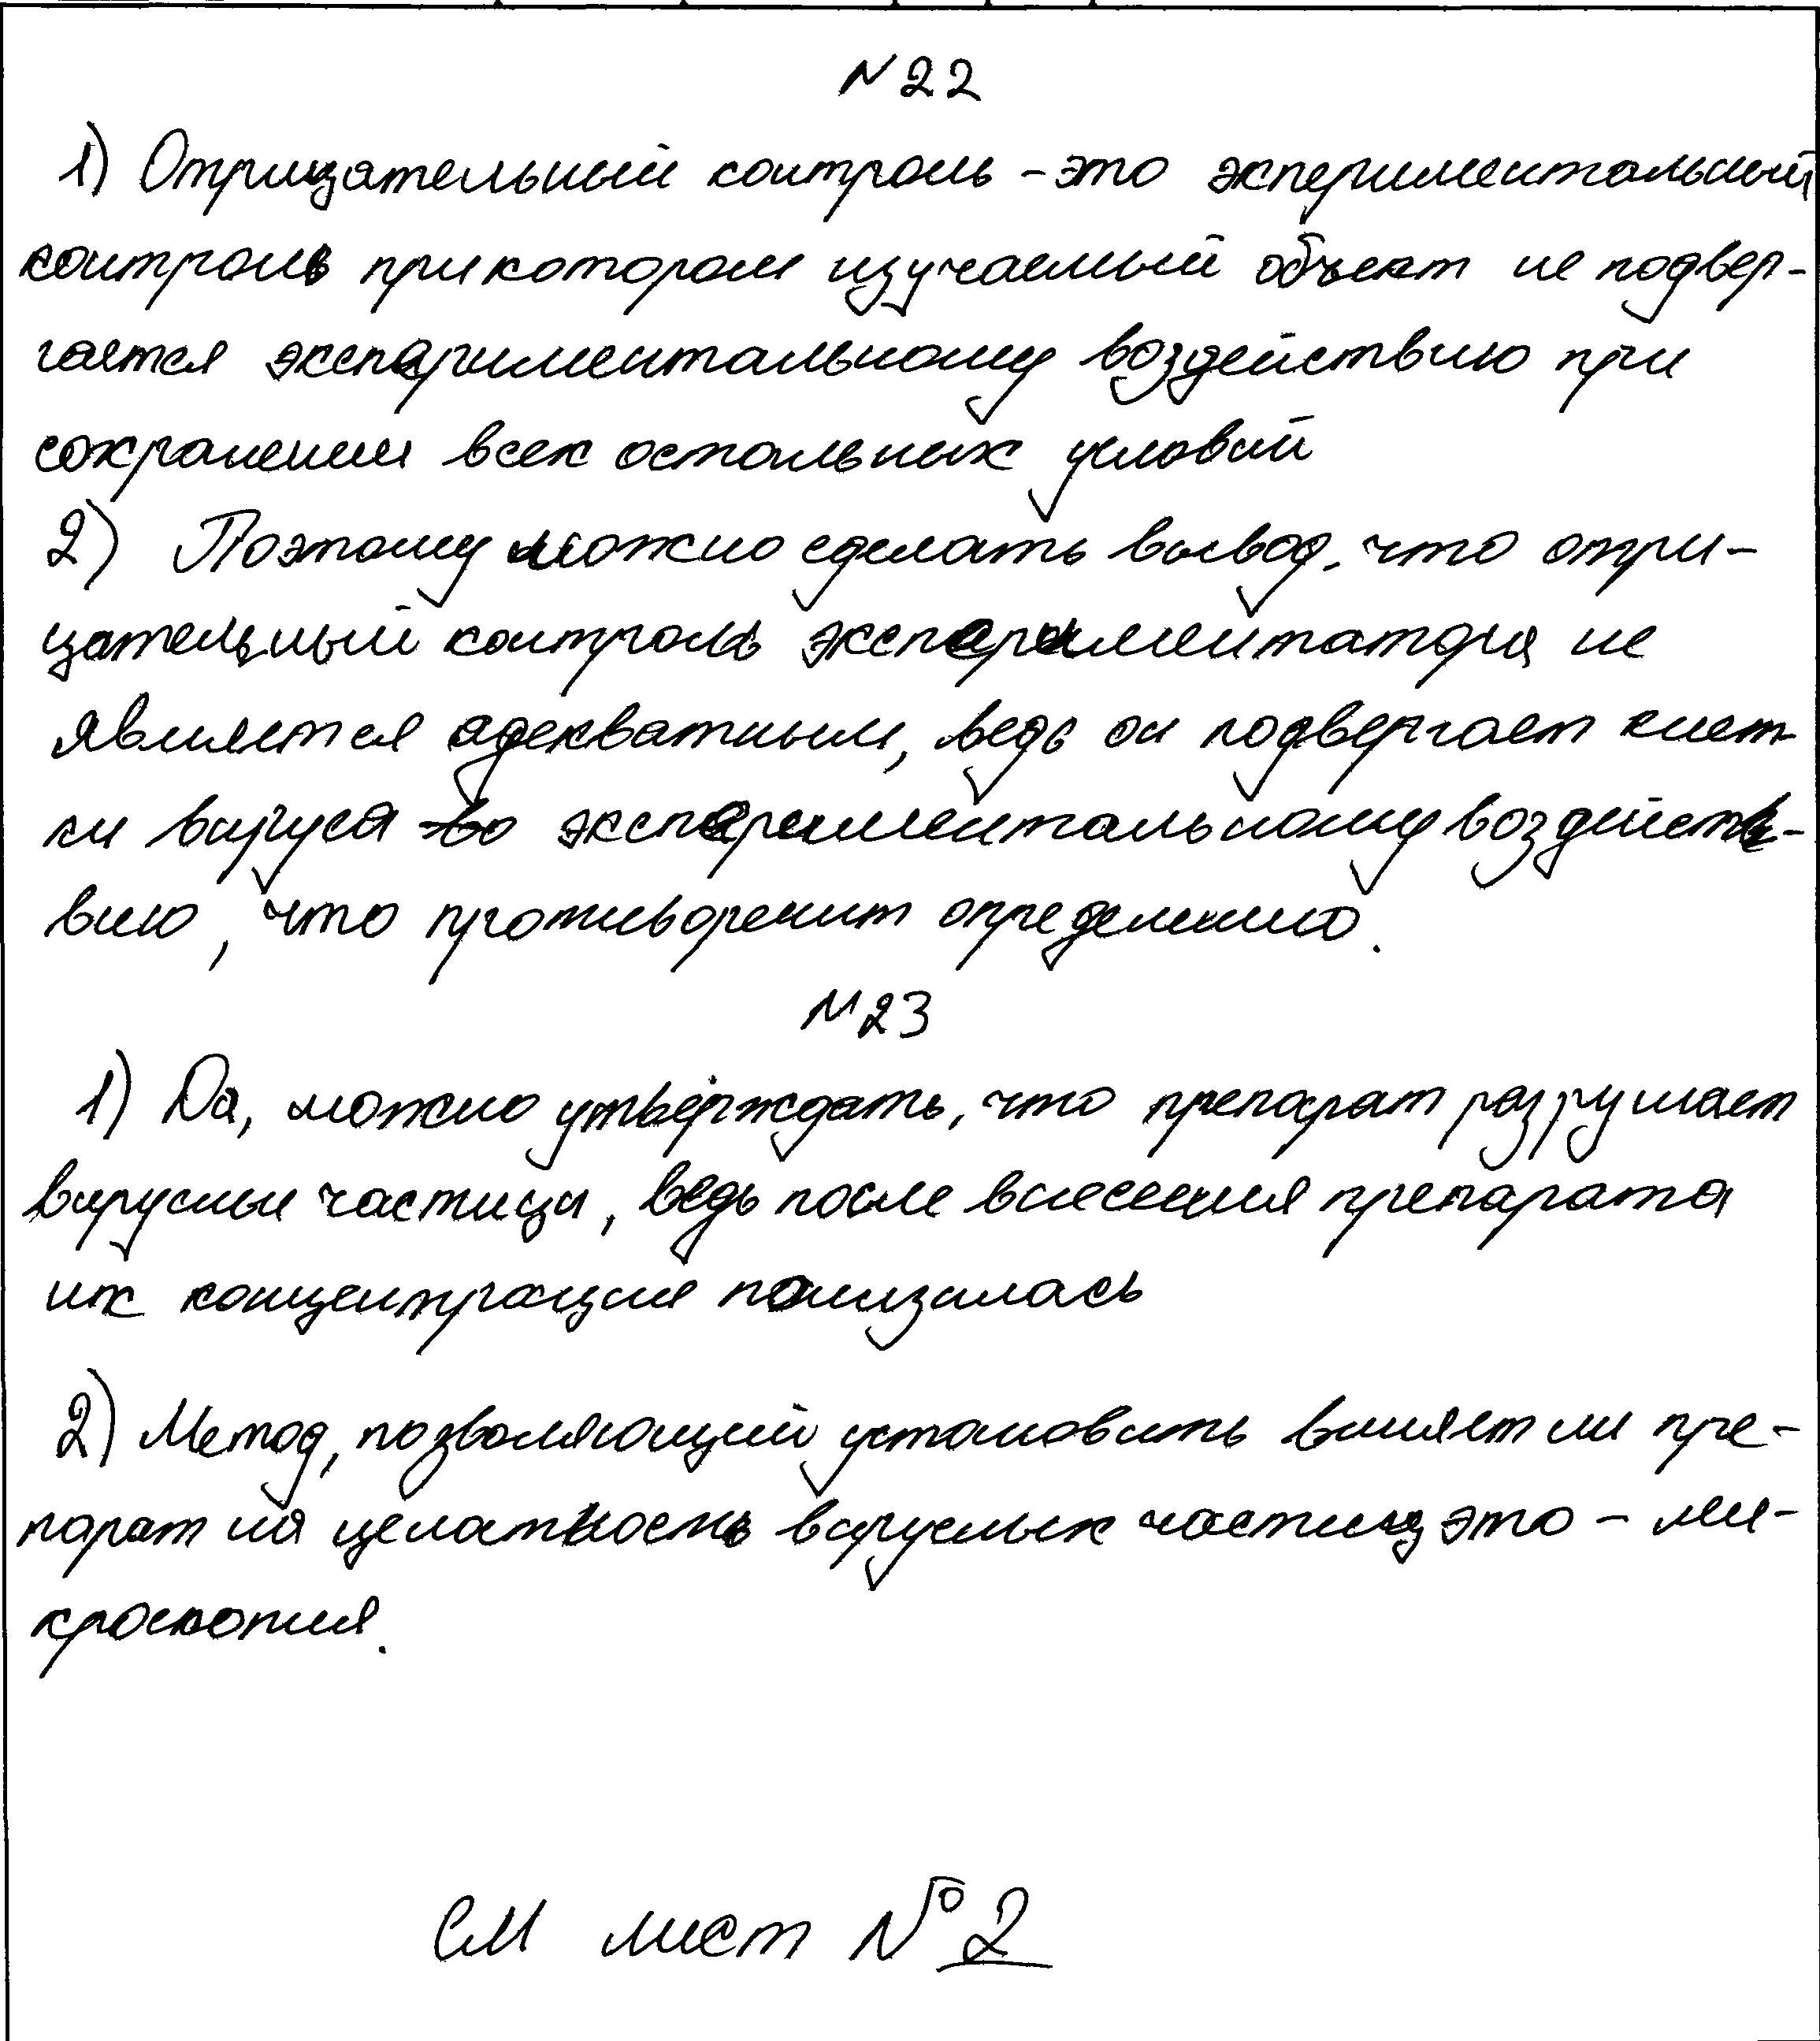 N 22
1) Отрицательный контроль - это экпериментальный
контроль при котором изучаемый объект не подвер-
гается экспериментальному воздействию при
сохранении всех остальных условий
2) Поэтому можно сделать вывод, что отри-
цательный контроль экспериментатора не
является адекватным, ведь он подвергает клет-
ки вируса экспериментальному воздейст-
вию, что противоречит определению.
N 23
1) Да, можно утверждать, что препарат разрушает
вирусные частицы, ведь после внесения препарата
их концентрация понизилась
2) Метод, позволяющий установить влияет ли пре-
парат на целатность вирусных частиц это - ми-
кроскопия.
См лист № 2